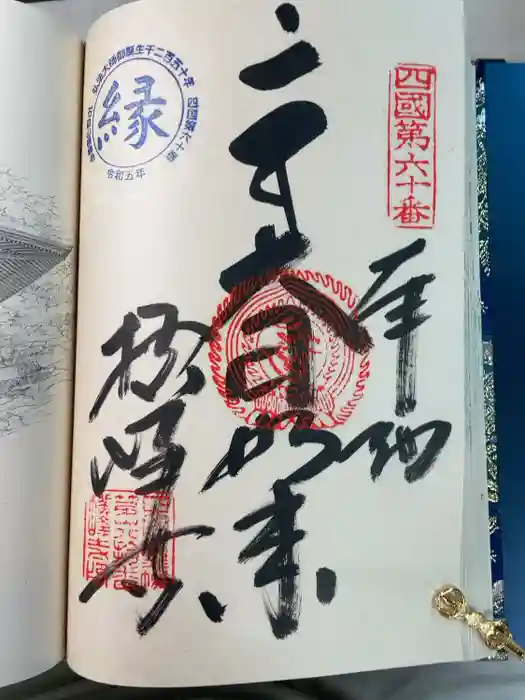 四國第六十番
奉納
大日如来
横峰寺
弘法大師御誕生千二百五十年
四国第六十番
縁
令和五年